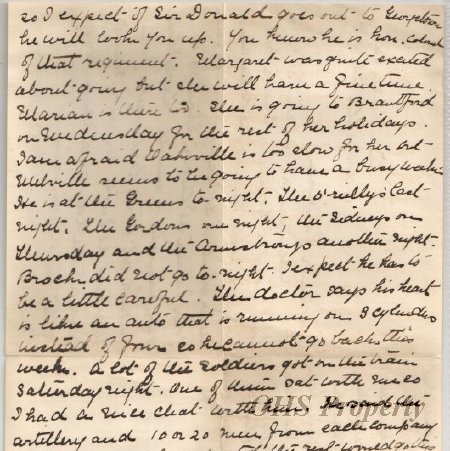 so I expect if Sir Donald goes out to Georgetown
he will look you up. You know he is Hon. Colonel
of that regiment. Margaret was quite excited
about going but she will have a fine time.
Marian is there too. She is going to Brantford
on Wednesday for the rest of her holidays.
I am afraid Oakville is too slow for her art
Melville seems to be going to have a busy week.
He is at the Greens to-night, The O'reillys last
night, The Gordons one night, the Sidneys on
Thursday and the Armstrongs another night.
Brock did not go to-night. I expect he has to
be a little careful. The doctor says his heart
is like an auto that is running on 3 cylinders
instead of four so he cannot go back this
week. A lot of the soldiers got on the train
Saturday night. One of them sat with me so
I had a nice chat with him. He said the
OHS Property
artillery and 10 or 20 men from each company